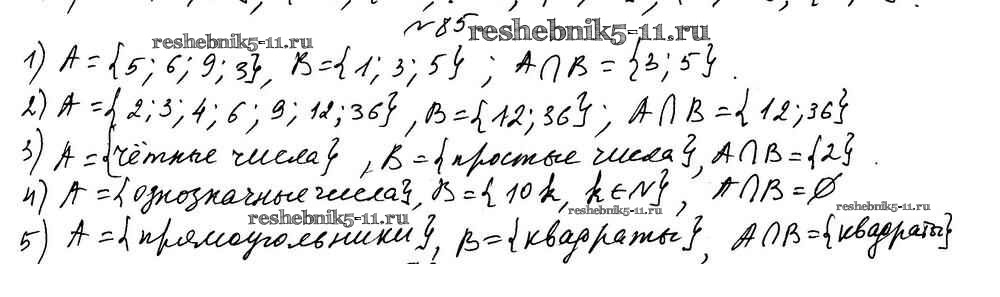 №85
reshebnik5-11.ru
reshebnik5-11.ru
1) A = {5; 6; 9; 3}, B = {1; 3; 5} ; A∩B = {3; 5}.
2) A = {2; 3; 4; 6; 9; 12; 36}, B = {12; 36}; A∩B = {12; 36}
3) A = {чётные числа}, B = {простые числа}, A∩B = {2}.
4) A = {однозначные числа}, B = {10k, k∈N}, A∩B = ∅
reshebnik5-11.ru
reshebnik5-11.ru
reshebnik5-11.ru
5) A = {прямоугольники}, B = {квадраты}, A∩B = {квадраты}